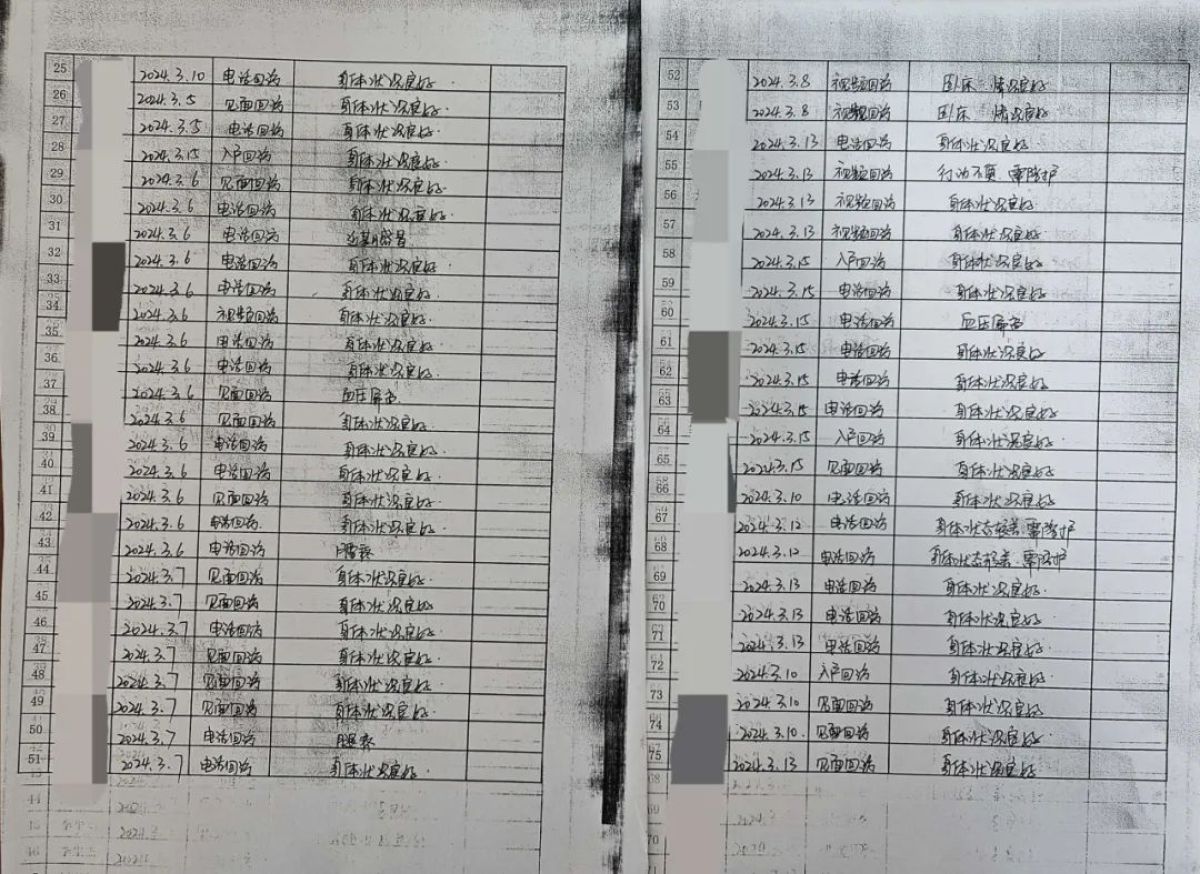 25 2024.3.10 电话回访 身体状况良好.
26 2024.3.5 见面回访 身体状况良好.
27 2024.3.5 电话回访 身体状况良好.
28 2024.3.15 入户回访 身体状况良好.
29 2024.3.6 见面回访 身体状况良好.
30 2024.3.6 电话回访 身体状况良好.
31 2024.3.6 电话回访 近期感冒
32 2024.3.6 电话回访 身体状况良好.
33 2024.3.6 电话回访 身体状况良好.
34 2024.3.6 视频回访 身体状况良好.
35 2024.3.6 电话回访 身体状况良好.
36 2024.3.6 电话回访 身体状况良好.
37 2024.3.6 见面回访 血压偏高
38 2024.3.6 见面回访 身体状况良好.
39 2024.3.6 电话回访 身体状况良好.
40 2024.3.6 电话回访 身体状况良好.
41 2024.3.6 见面回访 身体状况良好.
42 2024.3.6 电话回访 身体状况良好.
43 2024.3.6 电话回访 腰疼
44 2024.3.7 见面回访 身体状况良好.
45 2024.3.7 见面回访 身体状况良好.
46 2024.3.7 电话回访 身体状况良好.
47 2024.3.7 见面回访 身体状况良好.
48 2024.3.7 见面回访 身体状况良好.
49 2024.3.7 见面回访 身体状况良好.
50 2024.3.7 电话回访 腿疼
51 2024.3.7 电话回访 身体状况良好.
52 2024.3.8 视频回访 卧床 情况良好
53 2024.3.8 视频回访 卧床 情况良好
54 2024.3.13 电话回访 身体状况良好
55 2024.3.13 视频回访 行动不便.需陪护
56 2024.3.13 视频回访 身体状况良好
57 2024.3.13 视频回访 身体状况良好
58 2024.3.15 入户回访 身体状况良好
59 2024.3.15 电话回访 身体状况良好
60 2024.3.15 电话回访 血压偏高
61 2024.3.15 电话回访 身体状况良好
62 2024.3.15 电话回访 身体状况良好
63 2024.3.15 电话回访 身体状况良好
64 2024.3.15 入户回访 身体状况良好
65 2024.3.15 见面回访 身体状况良好
66 2024.3.10 电话回访 身体状况良好
67 2024.3.12 电话回访 身体状态较差.需陪护
68 2024.3.12 电话回访 身体状态较差.需陪护
69 2024.3.13 电话回访 身体状况良好
70 2024.3.13 电话回访 身体状况良好
71 2024.3.13 电话回访 身体状况良好
72 2024.3.10 入户回访 身体状况良好
73 2024.3.10 见面回访 身体状况良好
74 2024.3.10. 见面回访 身体状况良好
75 2024.3.13 见面回访 身体状况良好